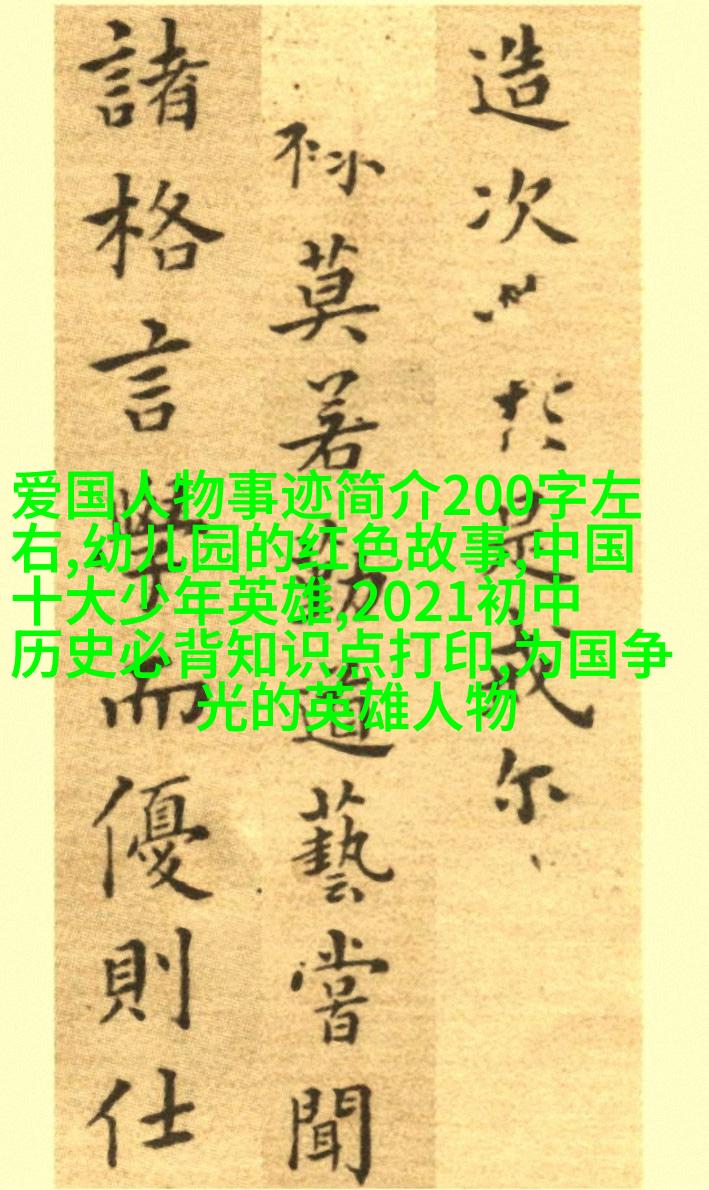 造次於是尔
莫若勤道藝嘗聞
諸格言學而優則仕
爱国人物事迹简介200字左
右,幼儿园的红色故事,中国
十大少年英雄,2021初中
历史必背知识点打印,为国争
光的英雄人物